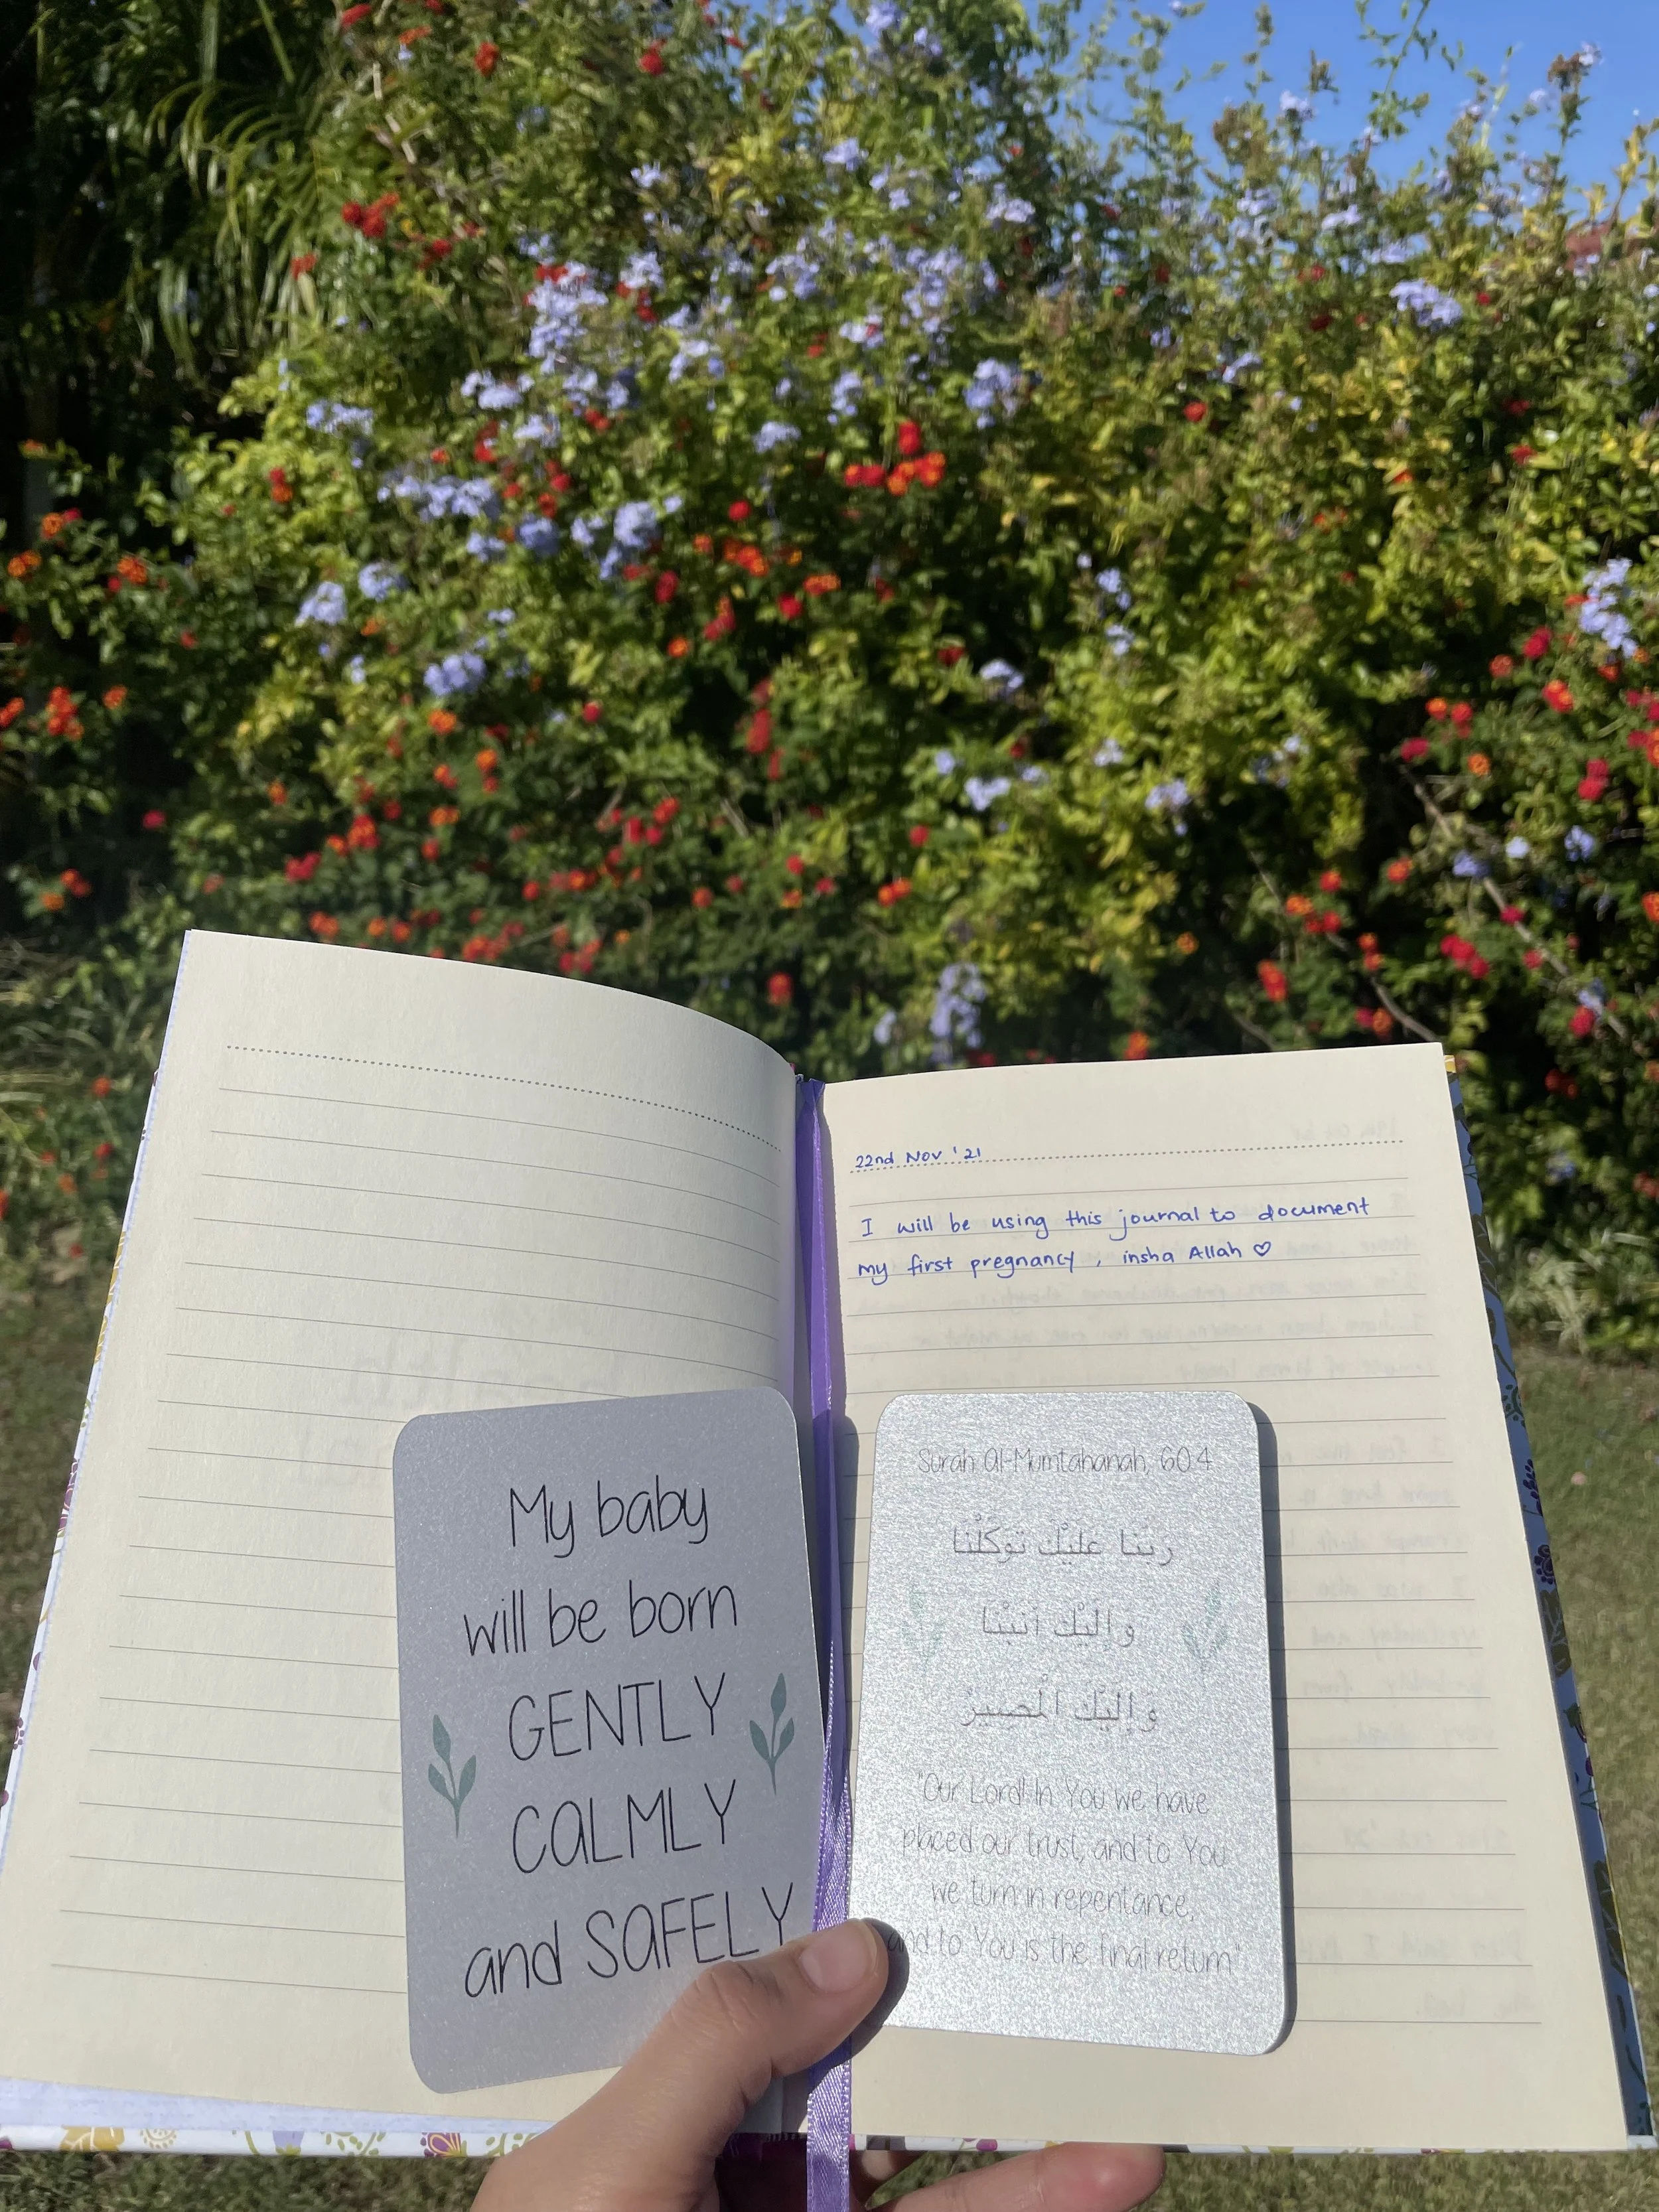 22nd Nov '21
I will be using this journal to document
my first pregnancy, insha Allah ♡
My baby
will be born
GENTLY
CALMLY
and SAFELY
Surah Al-Mumtahanah, 60:4
ربنا عليْك توكلْنا
وإليْك أنبْنا
وإليْك الْمصيرُ
"Our Lord! In You we have
placed our trust, and to You
we turn in repentance,
and to You is the final return"